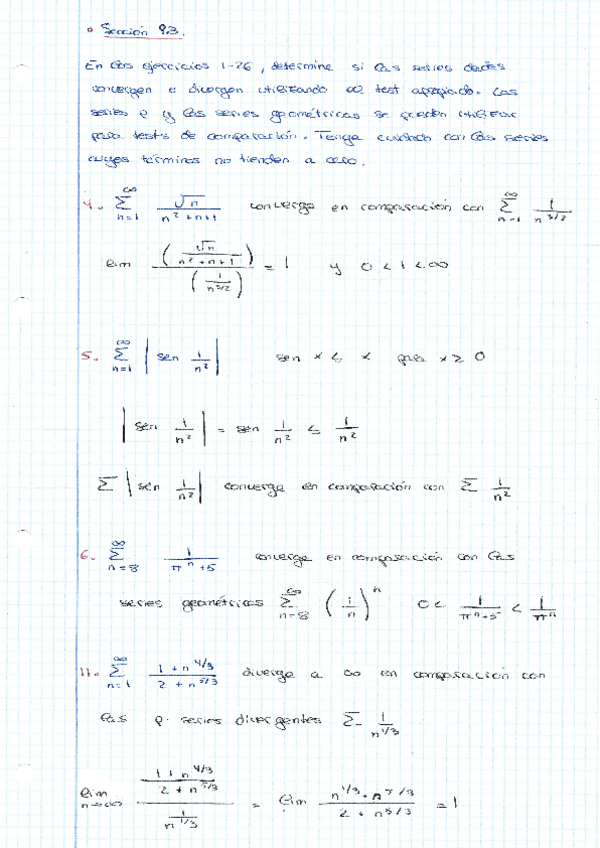 • Sección 9.3.
En los ejercicios 1-26, determine si las series dadas
convergen o divergen utilizando el test apropiado. Las
series p y las series geométricas se pueden utilizar
para tests de comparación. Tenga cuidado con las series
cuyos términos no tienden a cero.
4. ∑_{n=1}^{∞} √n / (n² + n + 1) converge en comparación con ∑_{n=1}^{∞} 1 / n^{3/2}
lim (√n / (n² + n + 1)) / (1 / n^{3/2}) = 1 y 0 < 1 < ∞
5. ∑_{n=1}^{∞} | sen 1/n² | sen x ≤ x para x ≥ 0
| sen 1/n² | = sen 1/n² ≤ 1/n²
∑ | sen 1/n² | converge en comparación con ∑ 1/n²
6. ∑_{n=8}^{∞} 1 / (π^n + 5) converge en comparación con las
series geométricas ∑_{n=8}^{∞} (1/π)^n 0 < 1 / (π^n + 5) < 1 / π^n
11. ∑_{n=1}^{∞} (1 + n^{4/3}) / (2 + n^{5/3}) diverge a ∞ en comparación con
las p. series divergentes ∑ 1 / n^{1/3}
lim_{n→∞} ((1 + n^{4/3}) / (2 + n^{5/3})) / (1 / n^{1/3}) = lim (n^{1/3} + n^{5/3}) / (2 + n^{5/3}) = 1